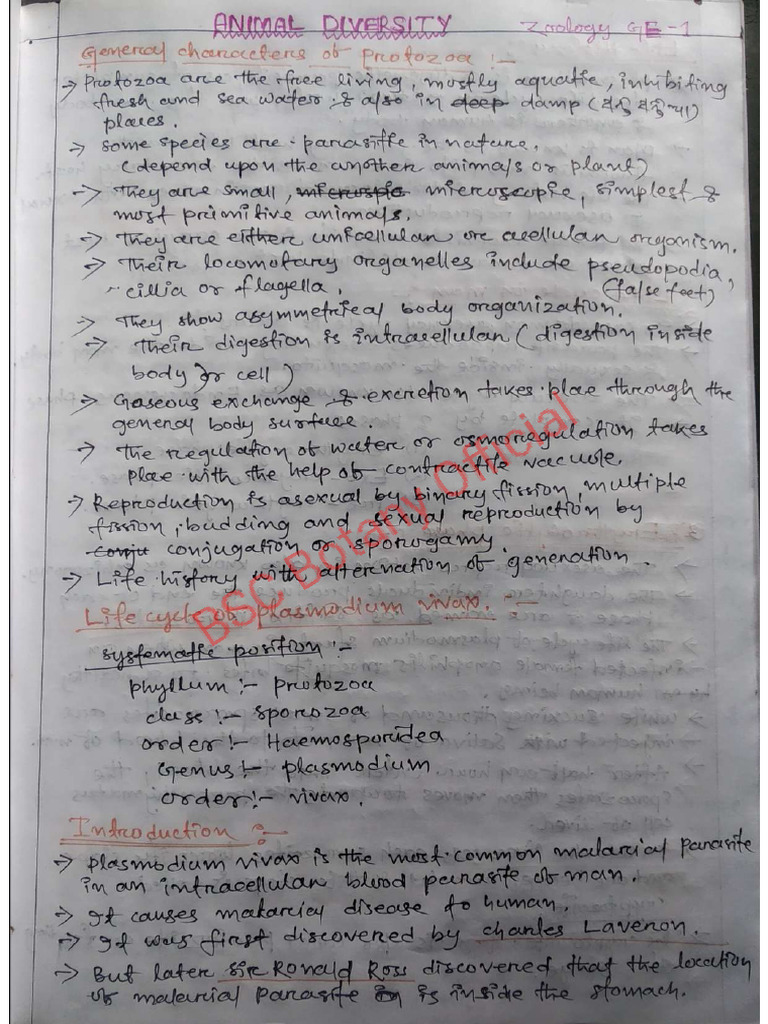 ANIMAL DIVERSITY Zoology GE-1
General characters of Protozoa :-
→ Protozoa are the free living, mostly aquatic, inhibiting
fresh and sea water & also in deep damp (
places.
→ Some species are parasitte in nature.
(depend upon the another animals or plant)
→ They are small, microspic microscopic, simplest &
most primitive animals.
→ They are either unicellular or acellular organism.
→ Their locomotary organelles include pseudopodia,
cillia or flagella. (false feet)
→ They show asymmetrical body organization.
→ Their digestion is intracellular (digestion inside
body or cell)
→ Gaseous exchange & excretion takes place through the
general body surface.
→ The regulation of water or osmoregulation takes
place with the help of contractile vacuole.
→ Reproduction is asexual by binary fission, multiple
fission, budding and sexual reproduction by
conju conjugation or sporogamy.
→ Life history with alternation of generation.
Life cycle of plasmodium vivax. :-
systematic position :-
phyllum :- protozoa
class :- sporozoa
order :- Haemosporidea
Genus :- plasmodium
order :- vivax.
Introduction :-
→ plasmodium vivax is the most common malarcial parasite
in an intracellular blood parasite of man.
→ It causes malarcial disease to human.
→ It was first discovered by charles Laveron.
→ But later Sir Ronald Ross discovered that the location
of malarcial parasite is inside the stomach.
BSC Botany Official